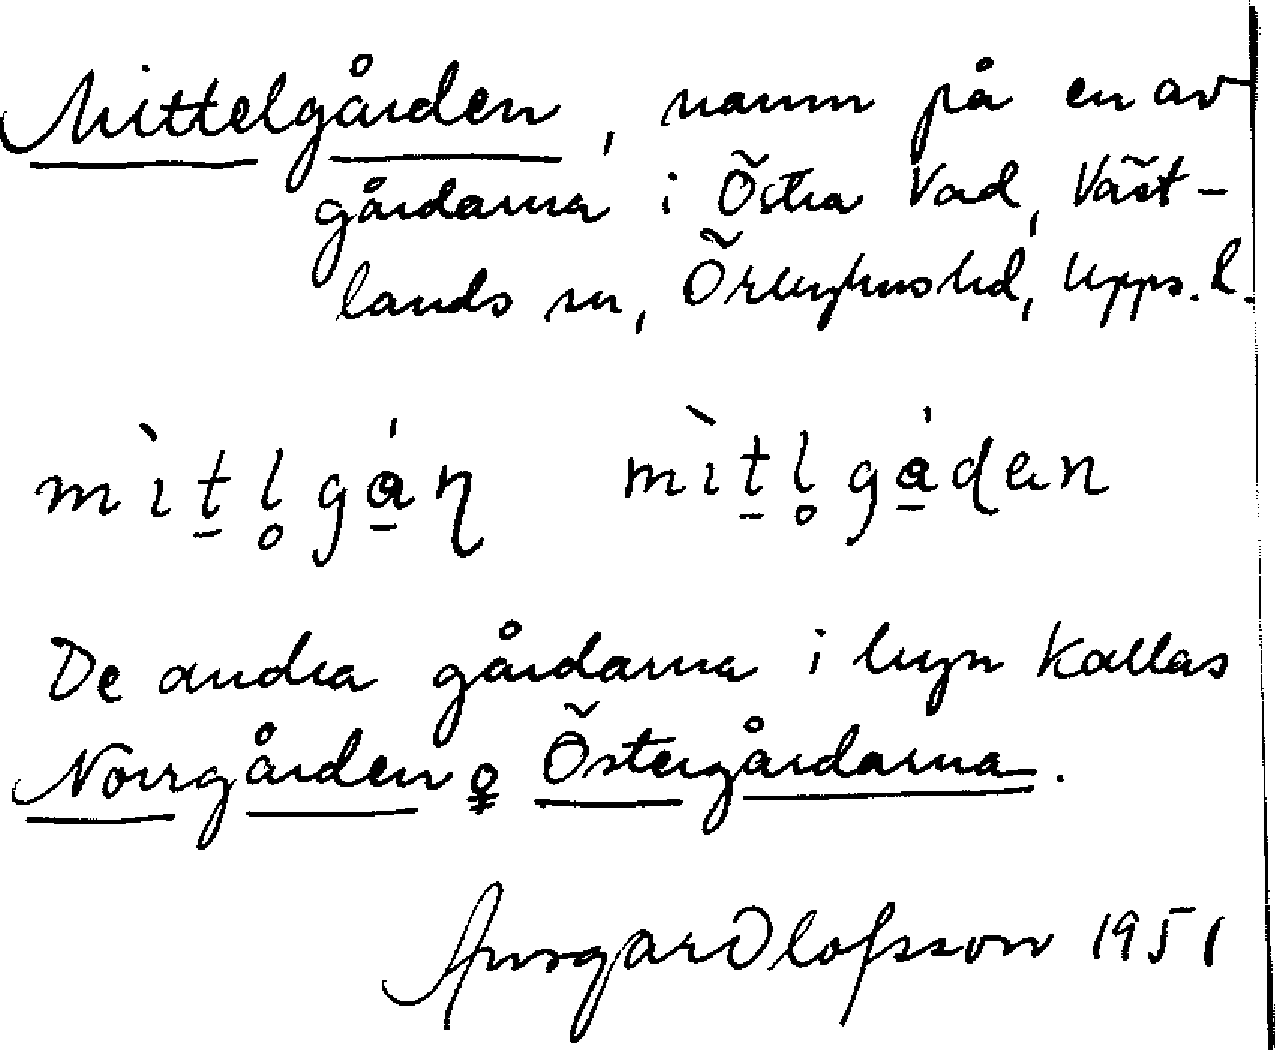 Mittelgården, namn på en av
gårdarna i Östra Vad, Väst-
lands sn, Örbyhus hd, Upps. l.
mìt̠l̥gá̠ɳ mìt̠l̥gá̠ɖen
De andra gårdarna i byn kallas
Norrgården o Östergårdarna.
Ansgar Olofsson 1951